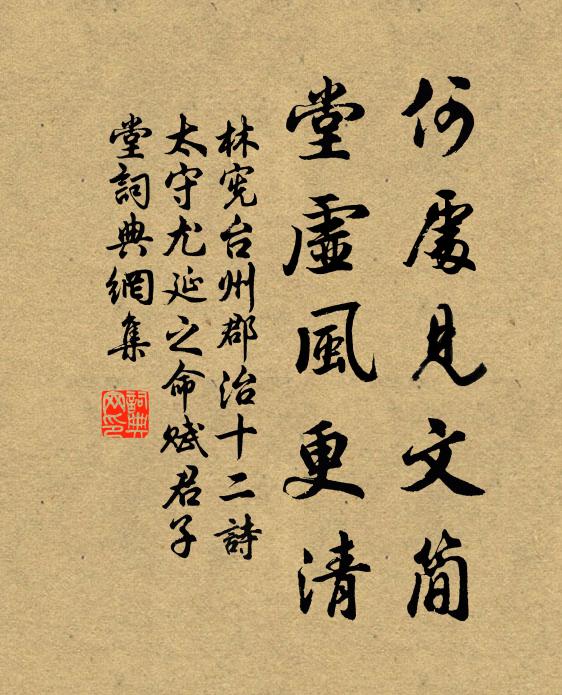 何處見文簡
堂虛風更清
林宪台州郡治十二詩
太守尤延之命賦君子
堂詞典網集
詞典網印